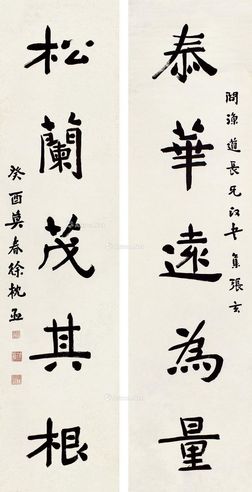 泰華遠為量
問漁道長兄
張玄
松蘭茂其根
癸酉莫春徐枕亞